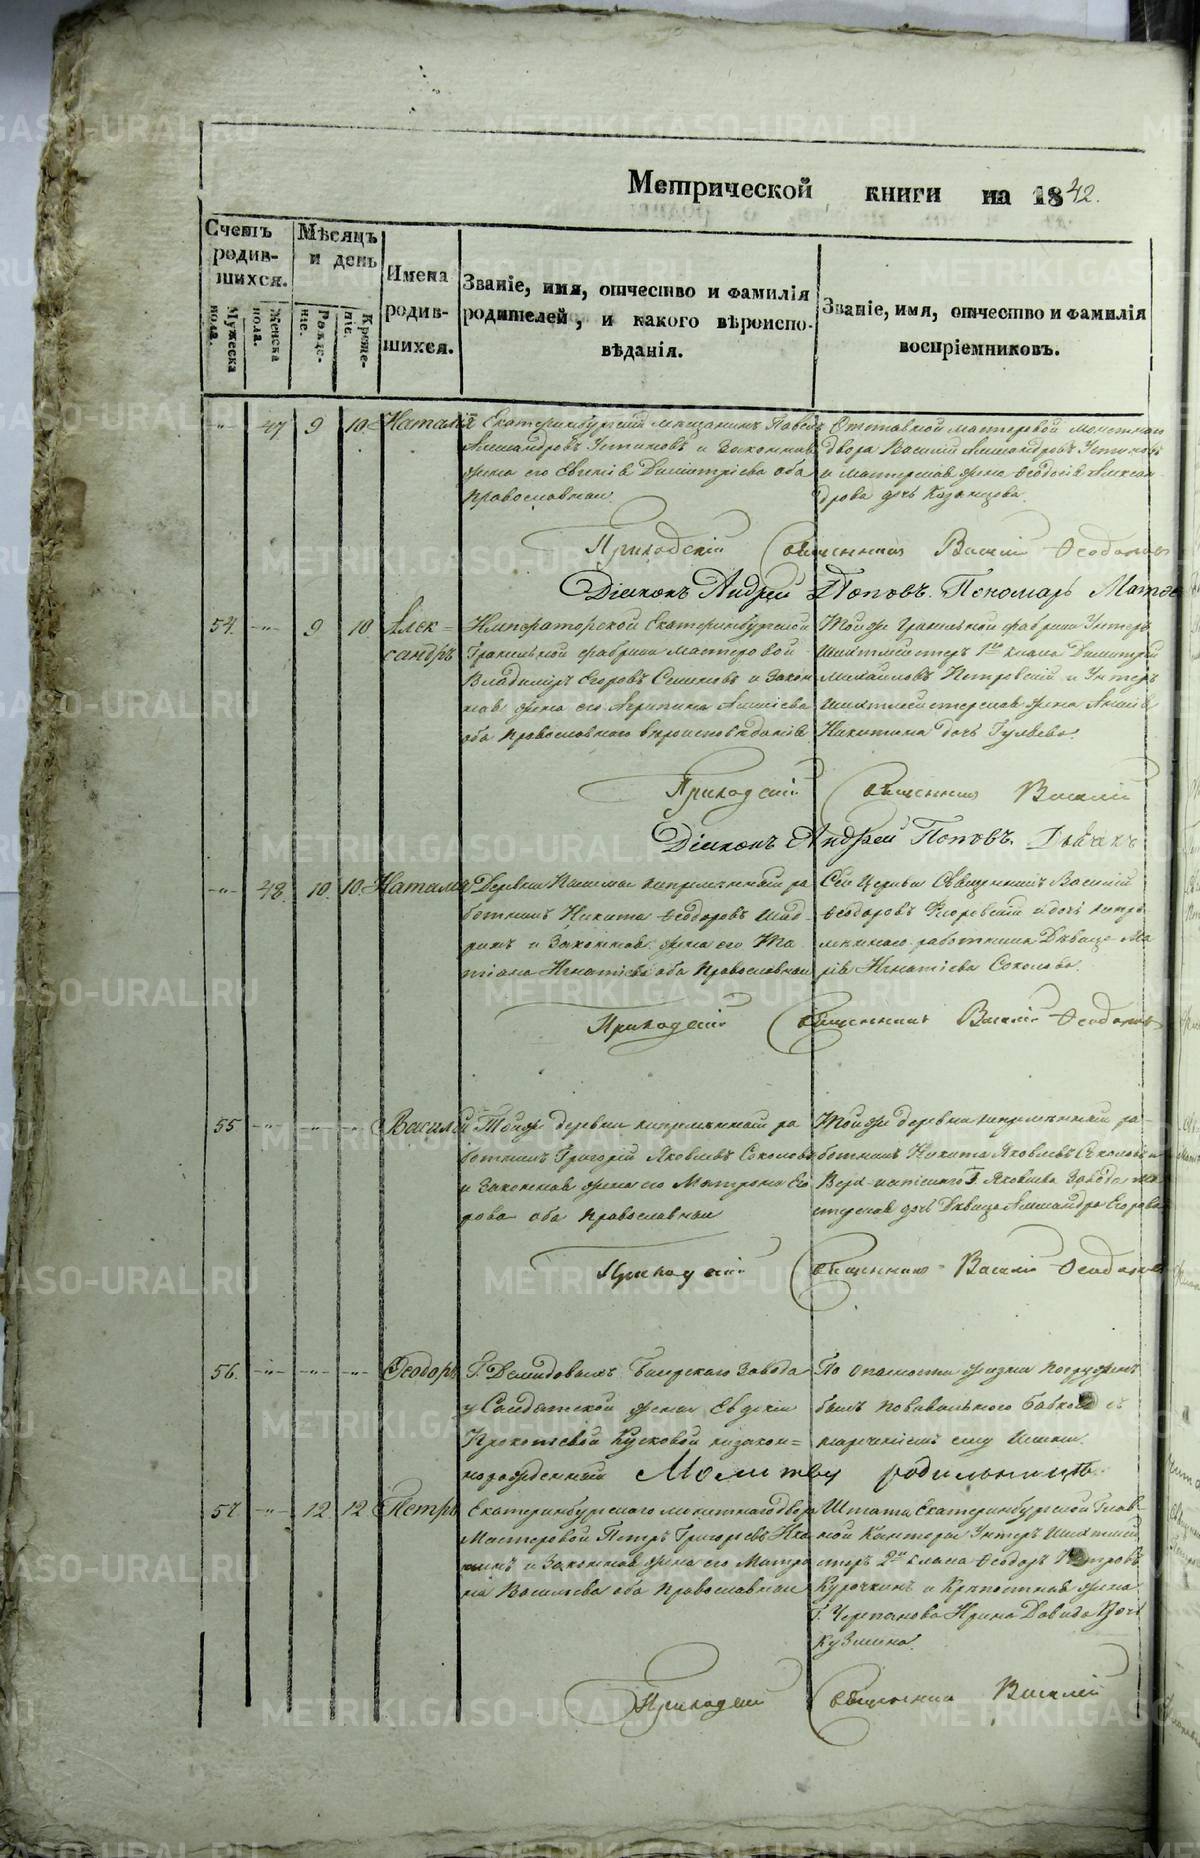 Метрической книги на 1842.
Счетъ родив-шихся.
Мужеска пола.
Женска пола.
Мѣсяцъ и день
Рожде-ніе.
Креще-ніе.
Имена родив-шихся.
Званіе, имя, отчество и фамилія
родителей, и какого вѣроиспо-
вѣданія.
Званіе, имя, отчество и фамилія
воспріемниковъ.
-"- 47 9 10 Наталія
Екатеринбургскій мѣщанинъ Павелъ
Александровъ Устиновъ и Законная
жена его Евгенія Димитріева оба
православнаи
Отставной мастеровой монетнаго
двора Василій Александровъ Устиновъ
и мастерская жена Ѳеодосія Алексан-
дрова дочь Казанцова.
Приходскій Священникъ Василій Ѳеодоровъ
Діаконъ Андрей Поповъ. Пономарь
54. -"- 9 10 Алек=
сандръ
Императорской Екатеринбургской
Гранильной фабрики мастеровой
Владиміръ Егоровъ и Закон
ная жена его Агрипина
оба православнаго вѣроисповѣданія
Тойже Гранильной фабрики Унтеръ
Шихтмейстеръ 1го класса Димитрій
Михайловъ Петровскій и Унтеръ
Шихтмейстерская жена
Никитина дочь Гуляева.
Приходскій Священникъ Василій
Діаконъ Андрей Поповъ. Дьячекъ
-"- 48. 10. 10. Наталія
Деревни непремѣнный ра
ботникъ Никита Ѳеодоровъ Шад-
ринъ и Законная жена его Та
тіана Игнатіева оба православнаи
Сей Церкви Священникъ Василій
Ѳеодоровъ и дочь непре
мѣннаго работника Дѣвица Ма
рія Игнатіева Соколова.
Приходскій Священникъ Василій Ѳеодоровъ
55 -"- -"- -"- Василій
Тойже деревни непремѣнный ра
ботникъ Григорій Яковлевъ Соколовъ
и Законная жена его Матрона Его
рова оба православнаи
Тойже деревни непремѣнный ра-
ботникъ Никита Яковлевъ Соколовъ и
Верх-исетскаго Г. Яковлева Завода ма
стерская дочь Дѣвица Александра Егорова
Приходскій Священникъ Василій Ѳеодоровъ
56. -"- -"- -"- Ѳеодоръ
Г. Демидовыхъ Завода
у Солдатской жены Евдокіи
Прокопьевой Кусковой незакон=
норожденный
По опасности жизни погруженъ
былъ повивальною бабкою съ
нареченіемъ ему имени.
Молитву родильницѣ
57. -"- 12 12 Петръ
Екатеринбургскаго монетнаго двора
Мастеровой Петръ Григорьевъ
и Законная жена его Матро
на Васильева оба православнаи
Штата Екатеринбургской Глав-
ной Конторы Унтеръ Шихтмей
стеръ 2го класса Ѳеодоръ Петровъ
Курочкинъ и Крѣпостная жена
Г. Черепанова Ирина Давидова дочь
Кузмина.
Приходскій Священникъ Василій
METRIKI.GASO-URAL.RU